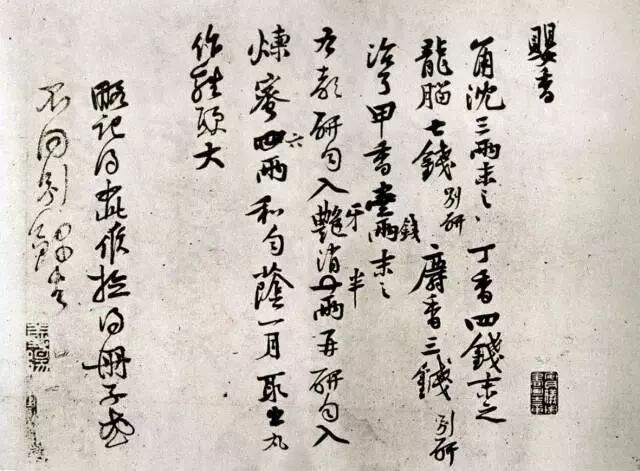 嬰香
角沈三兩末之丁香四錢末之
龍腦七錢別研麝香三錢別研
治了甲香壹錢末之
右都研勻入牙消半兩再研勻入
煉蜜六兩和勻蔭一月取出丸
作雞頭大
略記得如此候檢得冊子或
不同別錄去